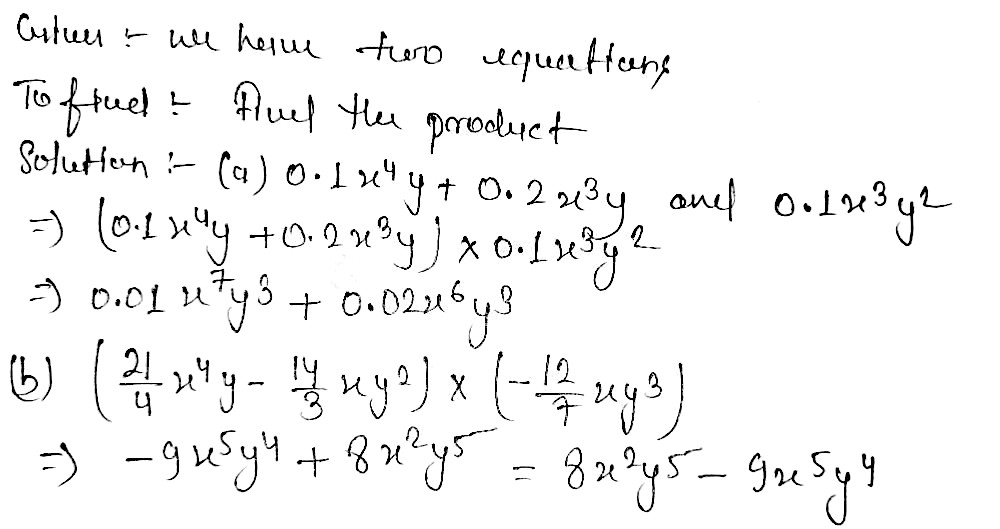 Given :- we have two equations
To find :- Find the product
Solution :- (a) 0.1x⁴y + 0.2x³y and 0.1x³y²
⇒ (0.1x⁴y + 0.2x³y) × 0.1x³y²
⇒ 0.01x⁷y³ + 0.02x⁶y³
(b) (21/4 x⁴y - 14/3 xy²) × (-12/7 xy³)
⇒ -9x⁵y⁴ + 8x²y⁵ = 8x²y⁵ - 9x⁵y⁴